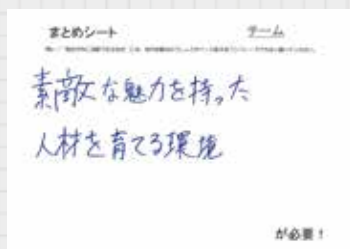 まとめシート
チーム
素敵な魅力を持った
人材を育てる環境
が必要！